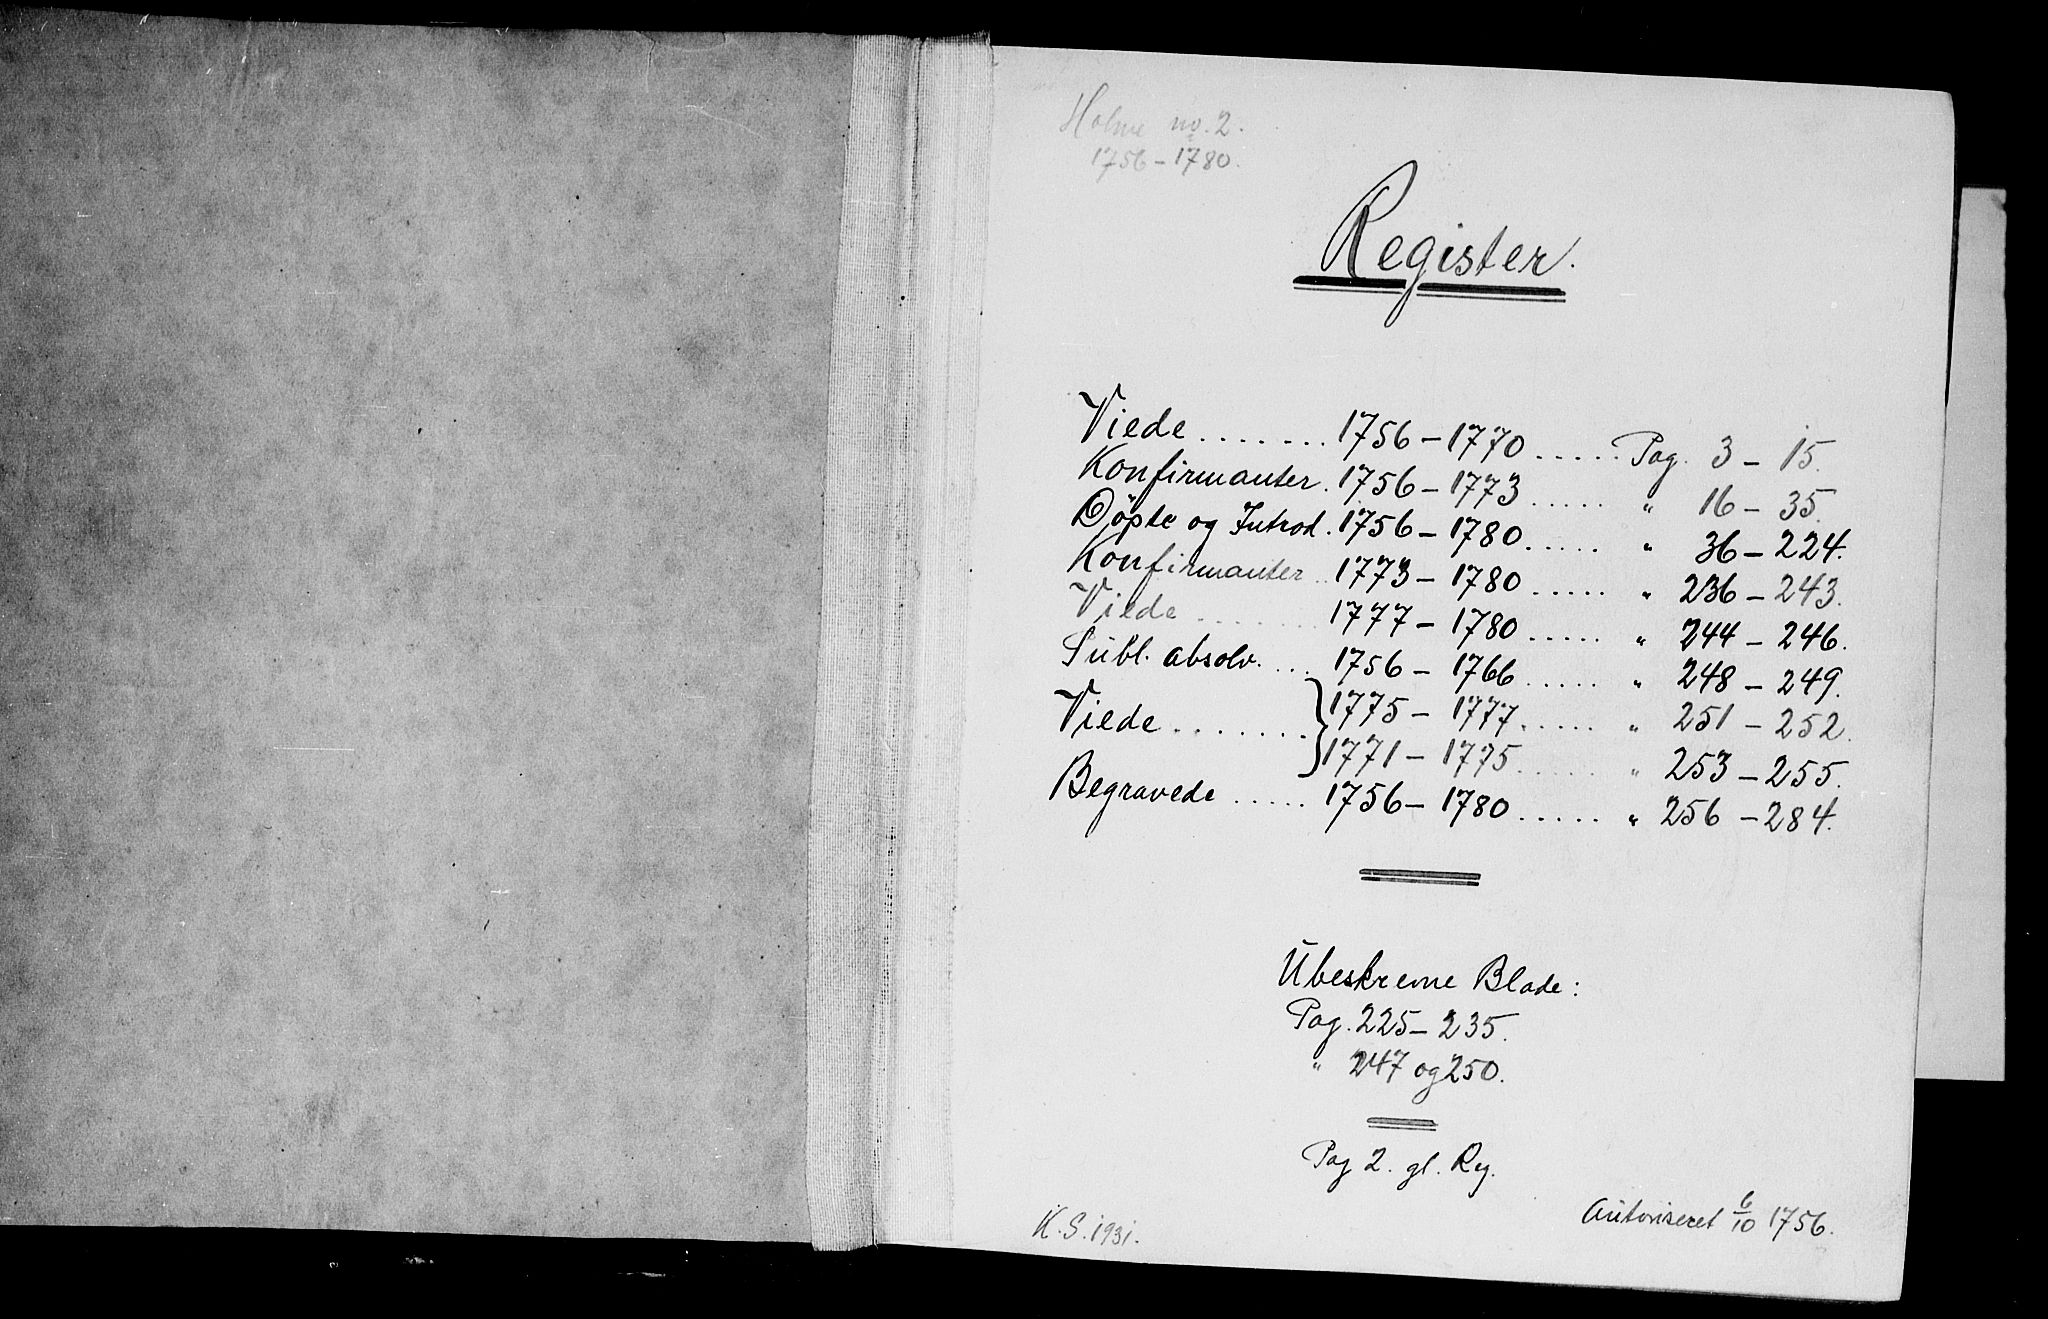 Holme no. 2.
1756-1780.
Register.
Viede ........ 1756-1770 ..... Pag. 3-15.
Konfirmanter. 1756-1773 ..... " 16-35.
Döpte og Introd. 1756-1780 ..... " 36-224.
Konfirmanter .. 1773-1780 ..... " 236-243.
Viede ........ 1777-1780 ..... " 244-246.
Publ. absolv. ... 1756-1766 ..... " 248-249.
Viede ........ } 1775-1777 ..... " 251-252.
1771-1775 ..... " 253-255.
Begravede ..... 1756-1780 ..... " 256-284.
Ubeskrevne Blade:
Pag. 225-235.
" 247 og 250.
Pag 2. gl. Reg.
Autoriseret 6/10 1756.
K.S. 1931.